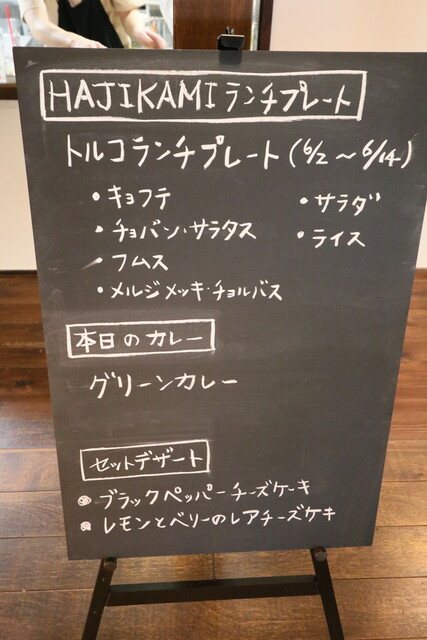 HAJIKAMIランチプレート
トルコランチプレート(6/2～6/14)
・キョフテ
・チョバン・サラタス
・フムス
・メルジメッキ・チョルバス
・サラダ
・ライス
本日のカレー
グリーンカレー
セットデザート
ブラックペッパーチーズケーキ
レモンとベリーのレアチーズケキ